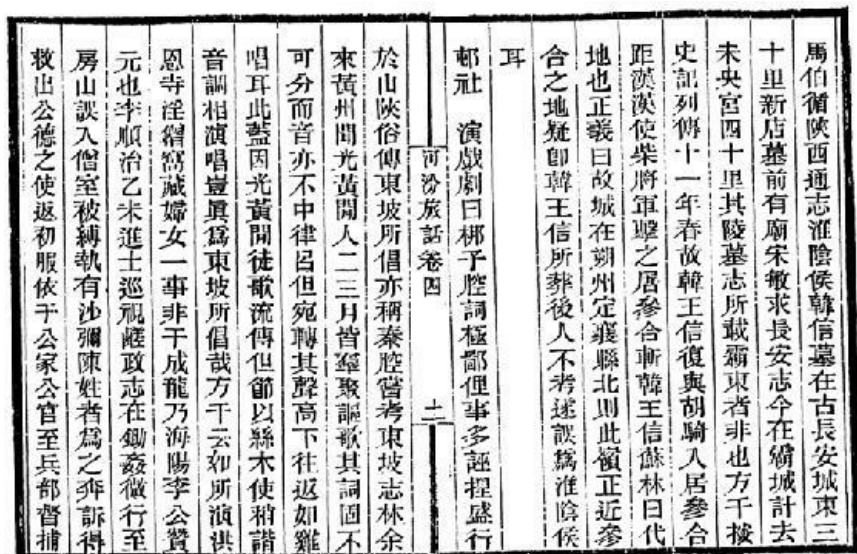 馬伯循陝西通志淮陰侯韓信墓在古長安城東三
十里新店墓前有廟宋敏求長安志今在霸城計去
未央宮四十里其陵墓志所載霸東者非也方干按
史記列傳十一年春故韓王信復與胡騎入居參合
距漢漢使柴將軍擊之居參合斬韓王信蘇林曰代
地也正義曰故城在朔州定襄縣北則此嶺正近參
合之地疑卽韓王信所葬後人不考遂誤爲淮陰侯
耳
邨社 演戲劇曰梆子腔詞極鄙俚事多誣捏盛行
河汾旅話卷四 十一
於山陝俗傳東坡所倡亦稱秦腔嘗考東坡志林余
來黃州聞光黃閒人二三月皆羣聚謳歌其詞固不
可分而音亦不中律呂但宛轉其聲高下往返如雞
唱耳此蓋因光黃閒徒歌流傳但節以緜木使稍諧
音調相演唱豈眞爲東坡所倡哉方干云如所演洪
恩寺淫僧窩藏婦女一事非于成龍乃海陽李公贊
元也李順治乙未進士巡視鹺政志在鋤姦微行至
房山誤入僧室被縛執有沙彌陳姓者爲之奔訴得
救出公德之使返初服依于公家公官至兵部督捕